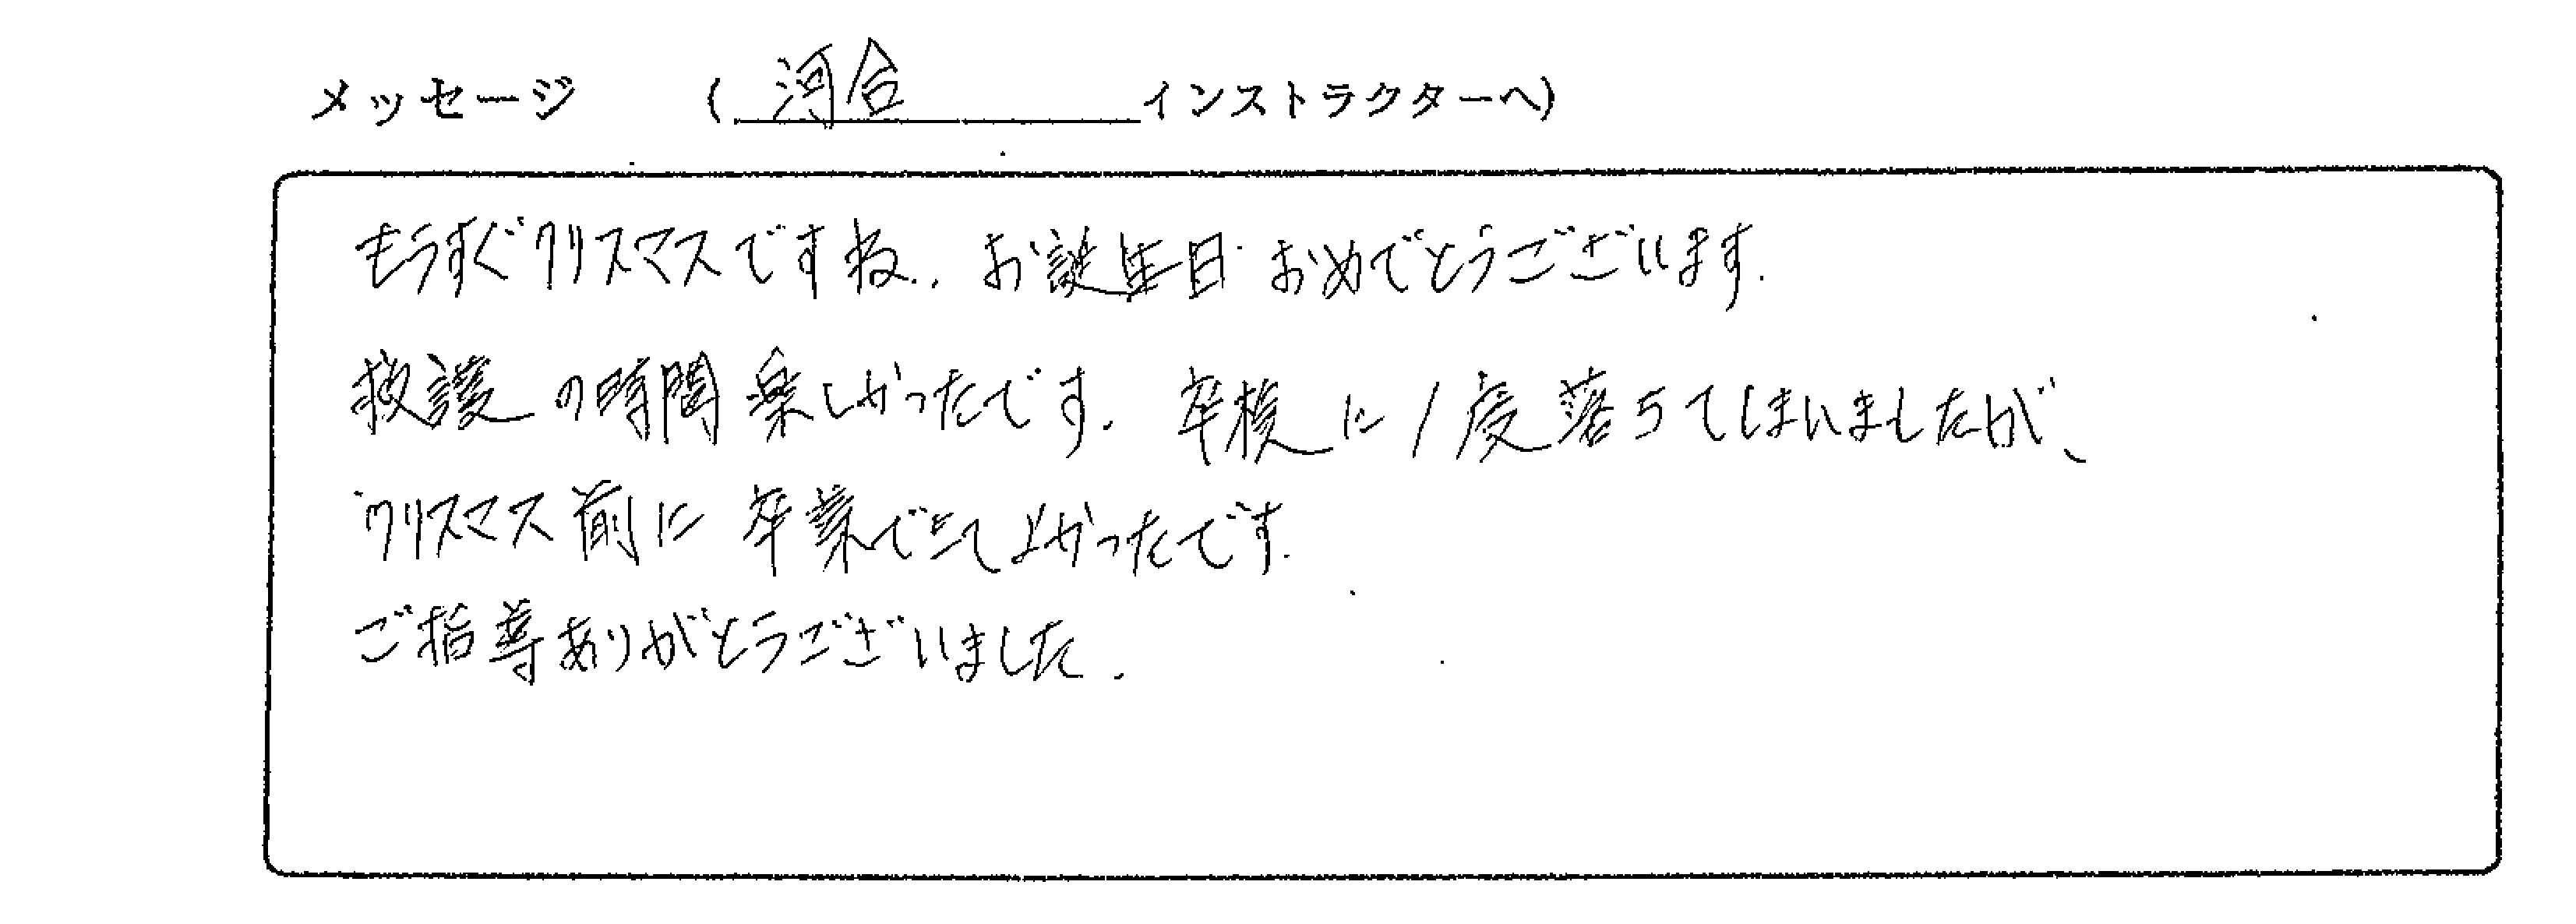 メッセージ （河合 インストラクターへ）
もうすぐクリスマスですね.. お誕生日おめでとうございます.
救護の時間楽しかったです. 卒検に1度落ちてしまいましたが、
クリスマス前に卒業できて よかったです.
ご指導ありがとうございました.